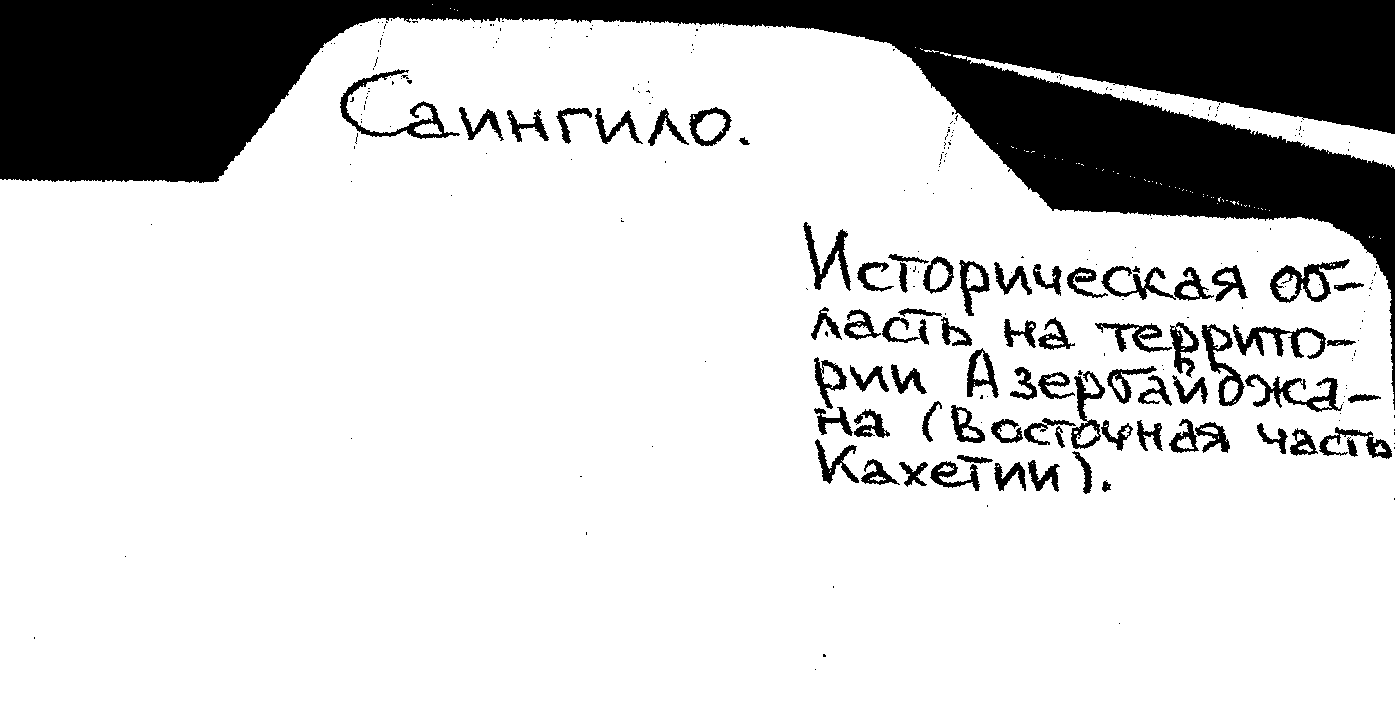 Саингило.
Историческая об-
ласть на террито-
рии Азербайджа-
на (Восточная часть
Кахетии).